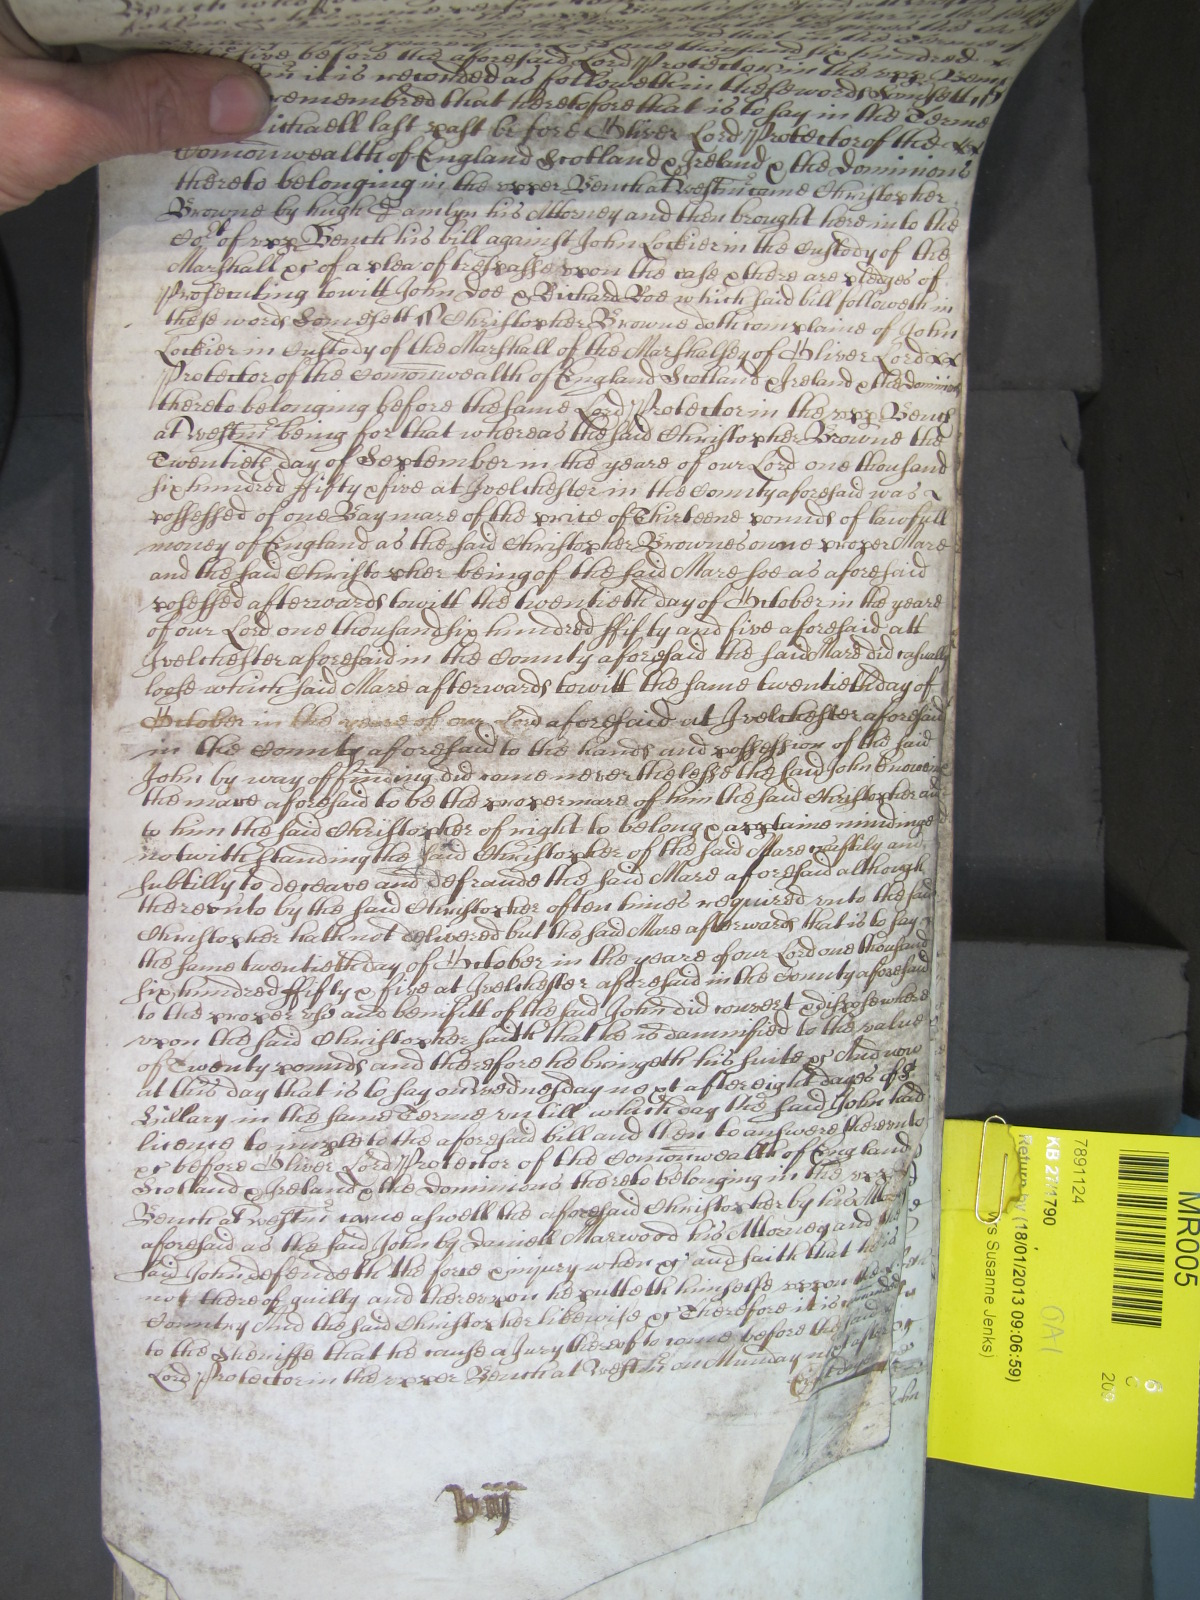 five before the aforesaid Lord Protector in the upp Bench
it is recorded as followeth in these words Somersett ss
remembred that heretofore that is to say in the Terme
Michaell last past before Oliver Lord Protector of the
Comonwealth of England Scotland & Ireland & the dominions
thereto belonging in the upper Bench at Westm came Christopher
Browne by hugh his Attorney and then brought here into the
Cot of upp Bench his bill against John Lockier in the Custody of the
Marshall &c of a plea of trespasse upon the case & there are pledges of
Prosecuting towitt John Doe & Richard Roe which said bill followeth in
these words Somersett ss Christopher Browne doth complaine of John
Lockier in Custody of the Marshall of the Marshalsey of Oliver Lord
Protector of the Comonwealth of England Scotland & Ireland & the dominions
thereto belonging before the same Lord Protector in the upp Bench
at Westm being for that whereas the said Christopher Browne the
Twentieth day of September in the yeare of our Lord one thousand
six hundred ffifty & five at Ivelchester in the County aforesaid was
possessed of one Bay mare of the price of Thirteene pounds of lawfull
money of England as the said Christopher Brownes owne proper Mare
and the said Christopher being of the said Mare soe as aforesaid
possessed afterwards towitt the twentieth day of October in the yeare
of our Lord one thousand six hundred ffifty and five aforesaid att
Ivelchester aforesaid in the County aforesaid the said Mare did casually
loose which said Mare afterwards towitt the same twentieth day of
October in the yeare of our Lord aforesaid at Ivelchester aforesaid
in the County aforesaid to the hands and possession of the said
John by way of finding did come neverthelesse the said John knoweing
the mare aforesaid to be the proper mare of him the said Christopher and
to him the said Christopher of right to belong & apptaine mindinge
notwithstanding the said Christopher of the said Mare craftily and
subtilly to deceave and defraude the said Mare aforesaid although
thereunto by the said Christopher often times required unto the said
Christopher hath not delivered but the said Mare afterwards that is to say
the same twentieth day of October in the yeare of our Lord one thousand
six hundred ffifty & five at Ivelchester aforesaid in the County aforesaid
to the proper use and benifitt of the said John did convert & dispose where
upon the said Christopher saith that he is damnified to the value
of Twenty pounds and therefore he bringeth his suite &c And now
at this day that is to say on Wednesday next after eight dayes of St
Hillary in the same Terme untill which day the said John had
licence to imple to the aforesaid bill and then to answere thereunto
&c before Oliver Lord Protector of the Comonwealth of England
Scotland & Ireland & the dominions thereto belonging in the upp
Bench at Westm came aswell the aforesaid Christopher by his Attorney
aforesaid as the said John by Daniell Marwood his Attorney and the
said John defendeth the force & injury when &c and saith that he is
not thereof guilty and thereupon he putteth himselfe uppon the
Country And the said Christopher likewise &c Therefore it is comanded
to the Sheriffe that he cause a Jury thereof to come before the said
Lord Protector in the upper Bench at Westm on Munday next after
viij
MR005
7891124
KB 27/1790
Return by (18/01/2013 09:06:59)
Susanne Jenks)
OA1
6
C
209